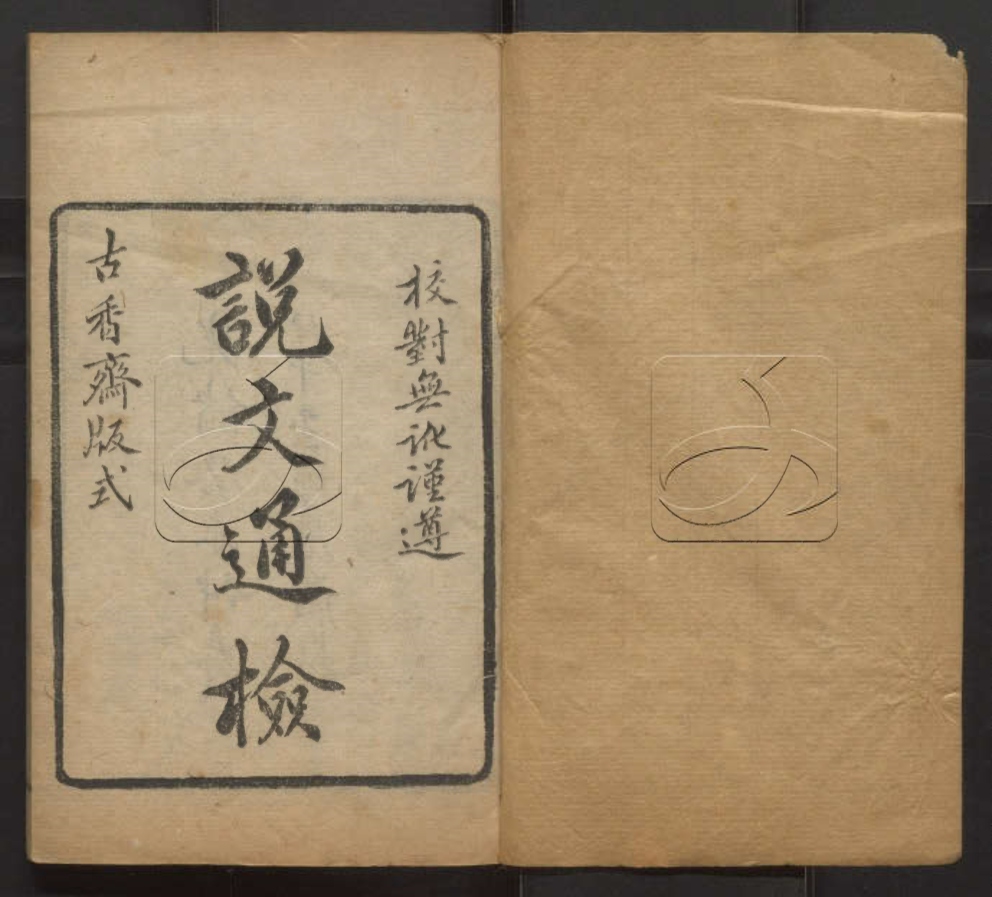 校對無訛謹遵
說文通檢
古香齋版式